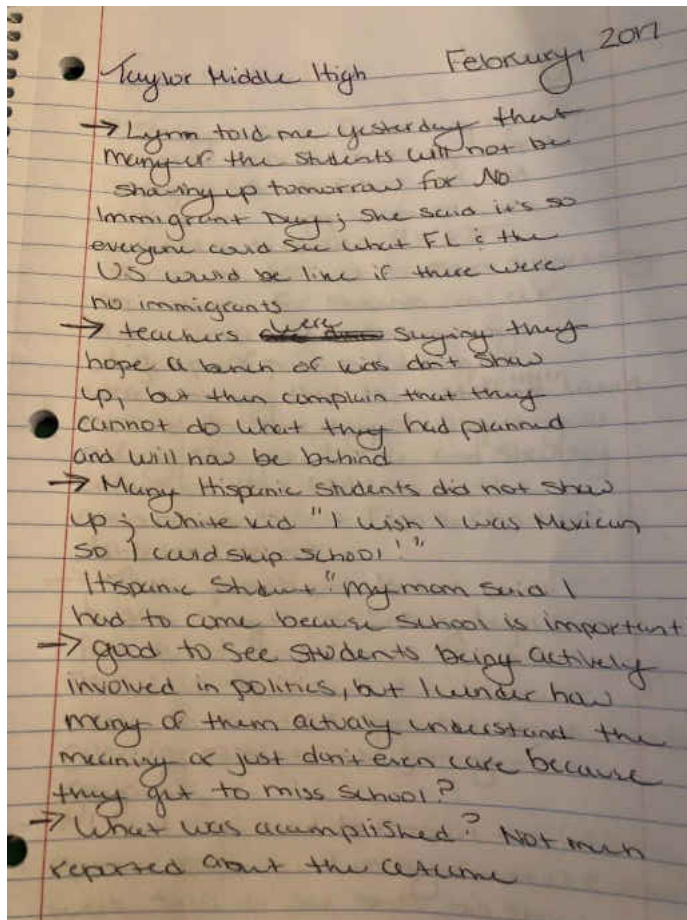 Taylor Middle High February, 2017
→ Lynn told me yesterday that
many of the students will not be
showing up tomorrow for No
Immigrant Day; she said it's so
everyone could see what FL & the
US would be like if there were
no immigrants
→ teachers were saying they
hope a bunch of kids don't show
up, but then complain that they
cannot do what they had planned
and will now be behind
→ Many Hispanic students did not show
up; White kid "I wish I was Mexican
so I could skip school!"
Hispanic Student "My mom said I
had to come because school is important
→ good to see students being actively
involved in politics, but I wonder how
many of them actually understand the
meaning or just don't even care because
they get to miss school?
→ What was accomplished? Not much
reported about the outcome